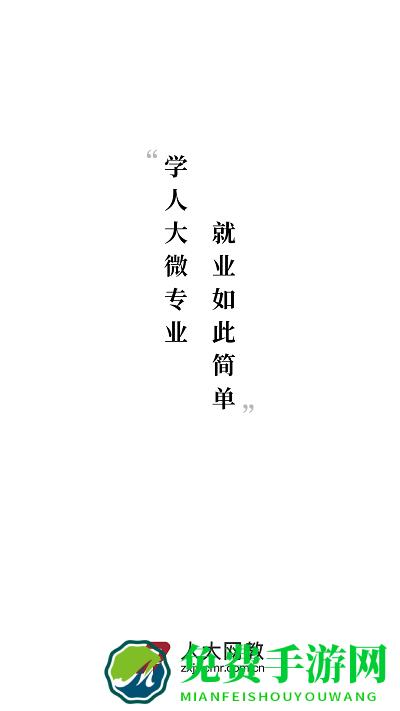 “学人大微专业
就业如此简单”
人大网教
免费手游网
MIANFEISHOUYOUWANG